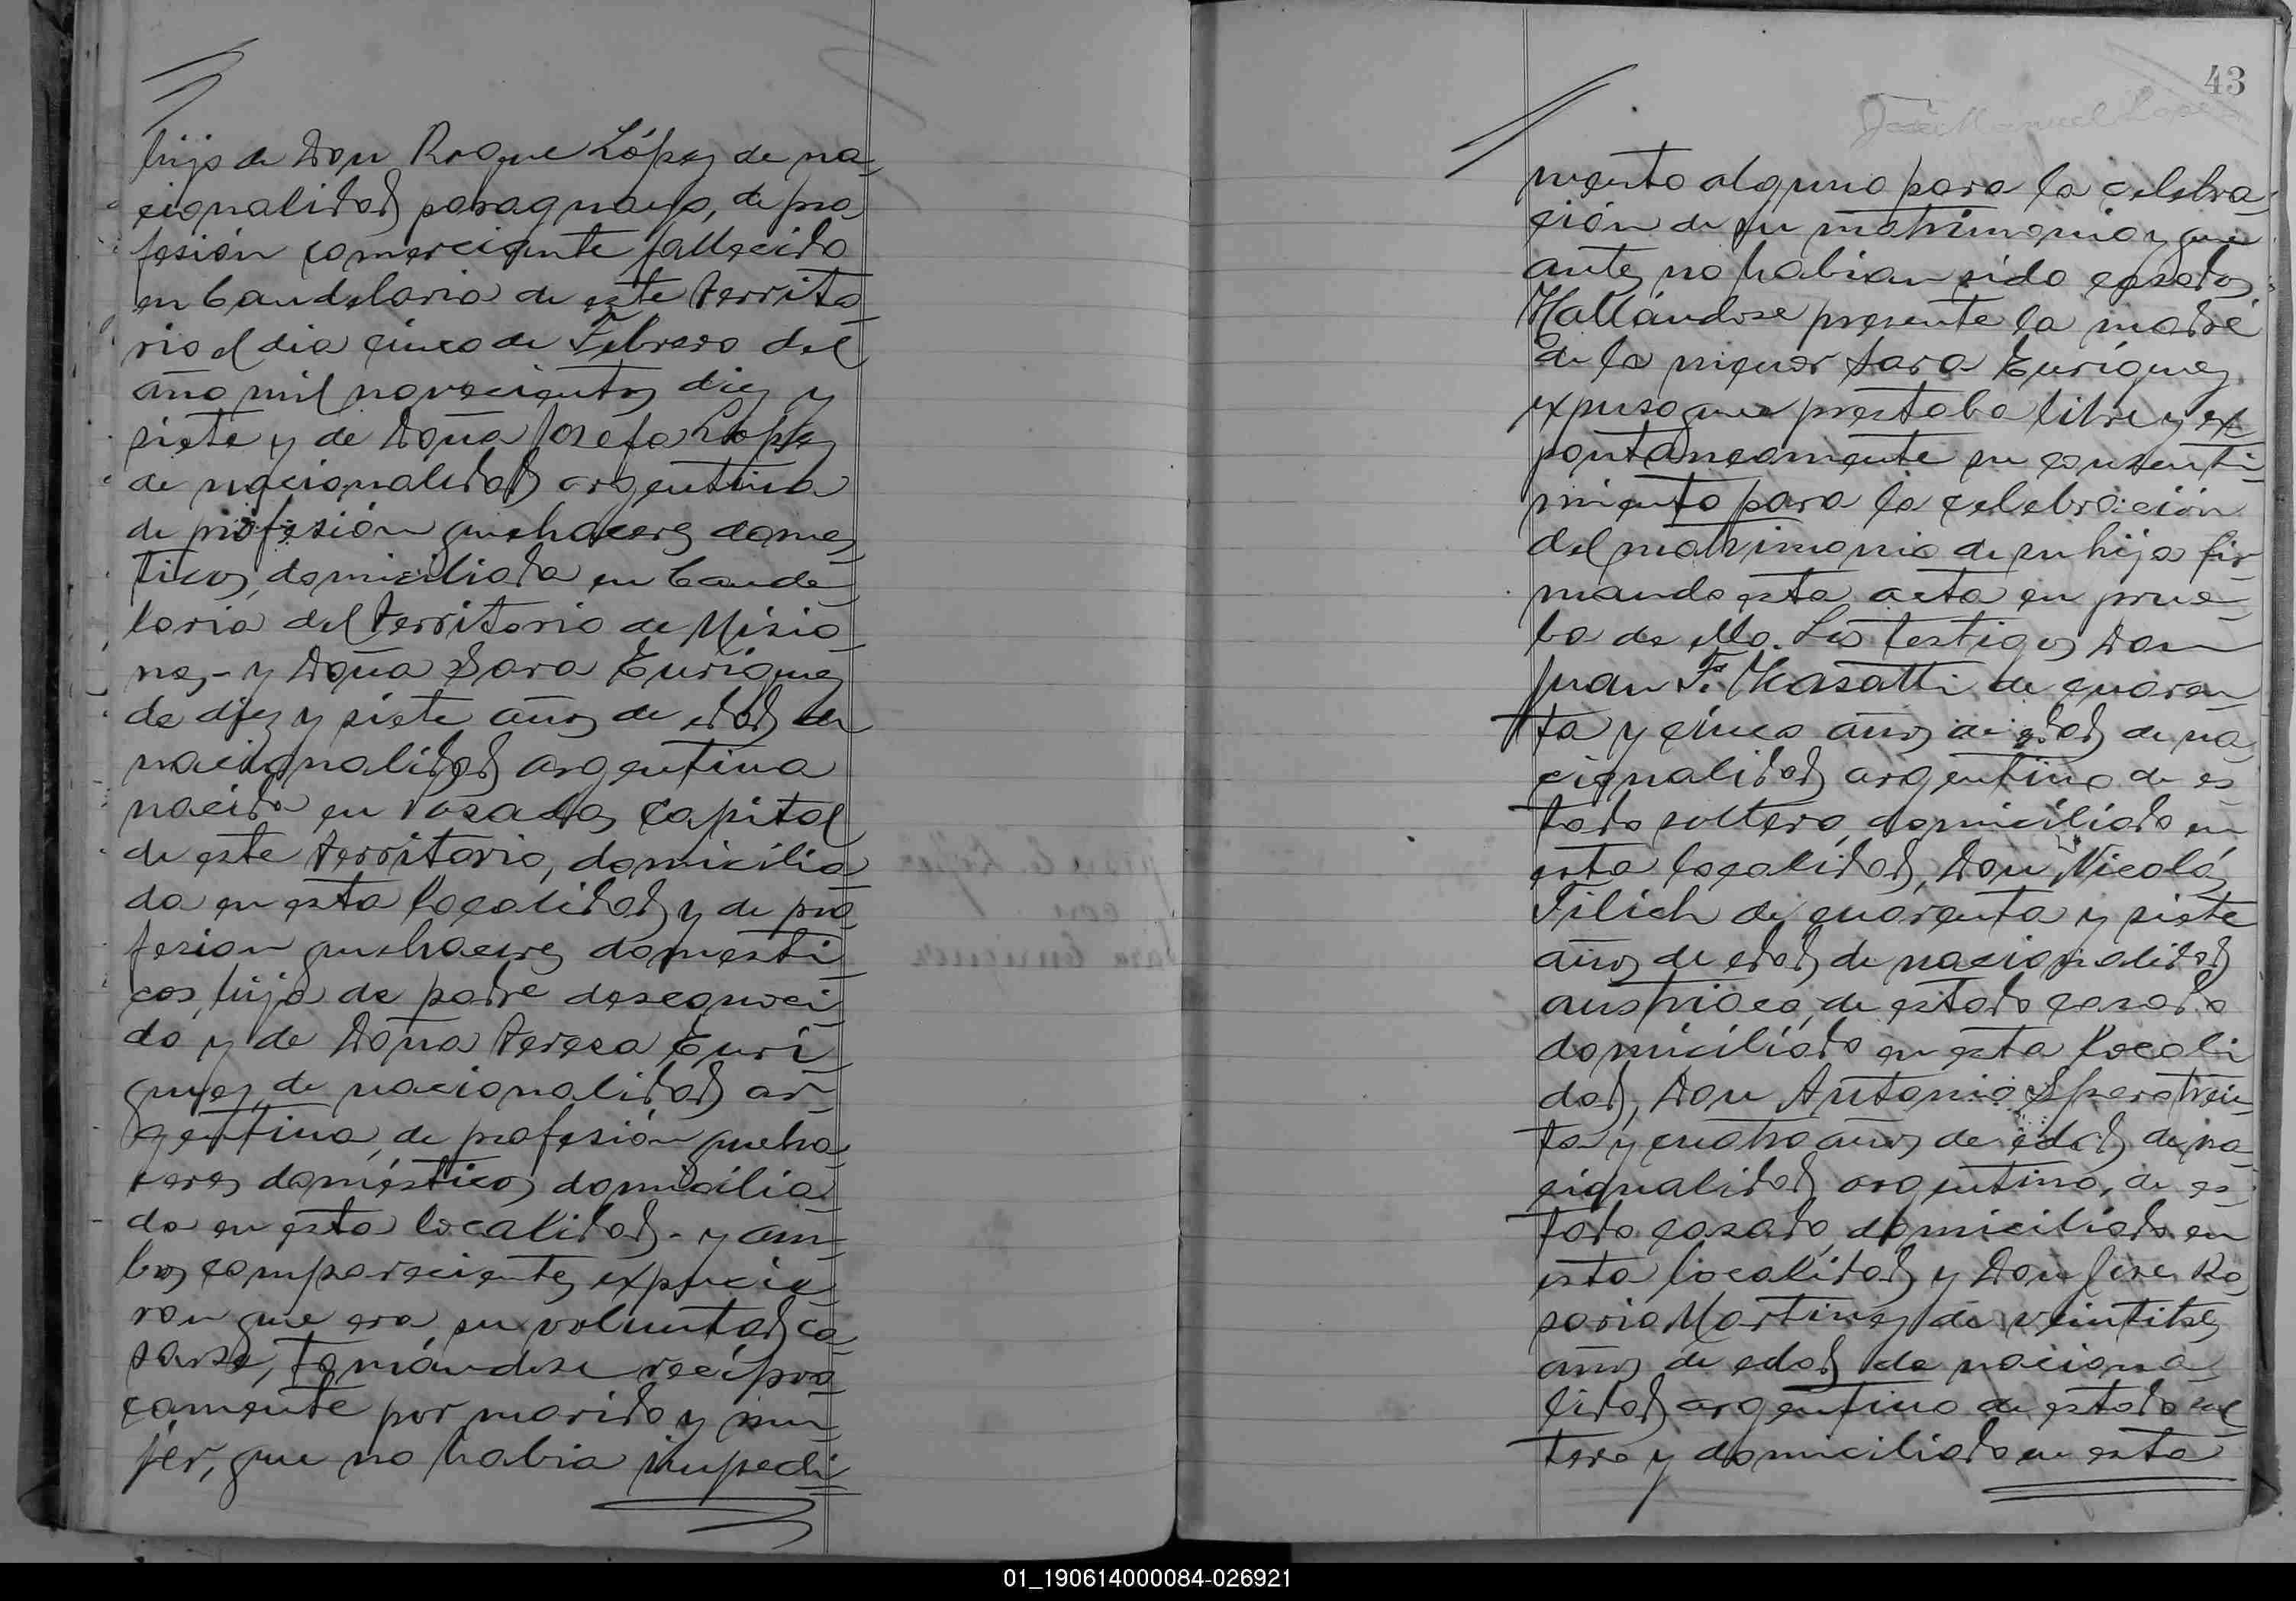 hijo de Don Roque López de na-
cionalidad paraguaya, de pro-
fesión comerciante fallecido
en Candelaria de este territo-
rio el dia cinco de Febrero del
año mil novecientos diez y
siete y de Doña Josefa López
de nacionalidad argentina
de profesión quehaceres domes-
ticos, domiciliada en Cande-
laria del territorio de Misio-
nes,- y Doña Sara Enríquez
de diez y siete años de edad de
nacionalidad argentina
nacida en Posadas Capital
de este territorio, domicilia-
da en esta localidad y de pro-
fesion quehaceres domesti-
cos, hija de padre desconoci-
do y de Doña Teresa Enrí-
quez, de nacionalidad ar-
gentina, de profesión queha-
ceres domésticos domicilia-
da en esta localidad.- y am-
bos comparecientes expucie-
ron que era su voluntad ca-
sarse, tomándose recípro-
camente por marido y mu-
jer, que no habia impedi-
43
José Manuel Lopez
mento alguno para la celebra-
ción de su matrimonio y que
antes no habian sido casados.
Hallándose presente la madre
de la menor Sara Enríquez
expuso que prestaba libre y ex-
pontáneamente su consenti-
miento para la celebración
del matrimonio de su hija fir-
mando esta acta en prue-
ba de ello. Los testigos Don
Juan F. Masatti de cuaren-
ta y cinco años de edad de na-
cionalidad argentina de es-
tado soltero, domiciliado en
esta localidad, Don Nicolás
Filich de cuarenta y siete
años de edad de nacionalidad
austriaca, de estado casado
domiciliado en esta locali-
dad, Don Antonio Spera trein-
ta y cuatro años de edad de na-
cionalidad argentina, de es-
tado casado, domiciliado en
esta localidad y Don José Ro-
sario Martinez de veintitres
años de edad de naciona-
lidad argentina de estado sol-
tero y domiciliado en esta
01_190614000084-026921